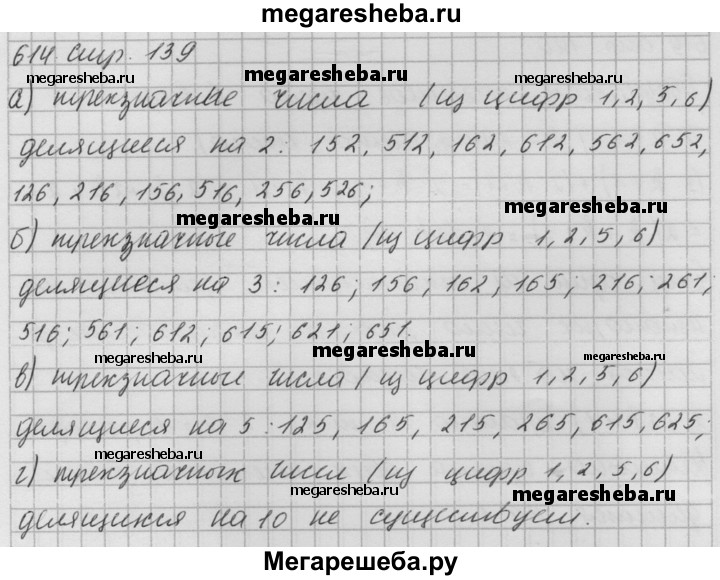 megaresheba.ru
614 стр. 139
megaresheba.ru megaresheba.ru megaresheba.ru
а) трехзначные числа /из цифр 1,2,5,6)
делящиеся на 2: 152, 512, 162, 612, 562, 652,
126, 216, 156, 516, 256, 526;
megaresheba.ru megaresheba.ru
б) трехзначные числа /из цифр 1,2,5,6)
делящиеся на 3: 126; 156; 162; 165; 216; 261;
516; 561; 612; 615; 621; 651.
megaresheba.ru megaresheba.ru megaresheba.ru
в) трехзначные числа /из цифр 1,2,5,6)
делящиеся на 5: 125, 165, 215, 265, 615, 625;
megaresheba.ru megaresheba.ru
г) трехзначных чисел /из цифр 1,2,5,6)
megaresheba.ru megaresheba.ru
делящихся на 10 не существует.
Мегарешеба.ру